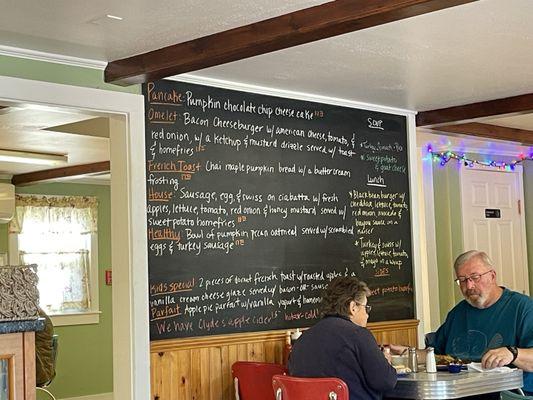 Pancake: Pumpkin chocolate chip cheese cake
Omelet: Bacon Cheeseburger w/ american cheese, tomato, &
red onion, w/ a ketchup & mustard drizzle served w/ toast
& homefries
French Toast: Chai maple pumpkin bread w/ a butter cream
frosting
House: Sausage, egg, & on ciabatta w/ fresh
apples, lettuce, tomato, red onion & honey mustard served w/
sweet potato homefries
Healthy: Bowl of pumpkin pecan oatmeal served w/ scrambled
eggs & turkey sausage
Kids Special: 2 pieces of donut french toast w/ roasted apples & a
vanilla cream cheese glaze served w/ bacon or sausage
Parfait: Apple pie parfait w/ vanilla yogurt &
We have Clyde's apple cider hot or cold!
Soup
Turkey, Spinach & Rice
sweet potato
& goat cheese
Lunch
Black bean burger w/
cheddar, lettuce, tomato,
red onion, avocado &
bayou sauce on a
kaiser
Turkey &
w/ apples, lettuce, tomato,
& mayo in a wrap
Sides
sweet potato